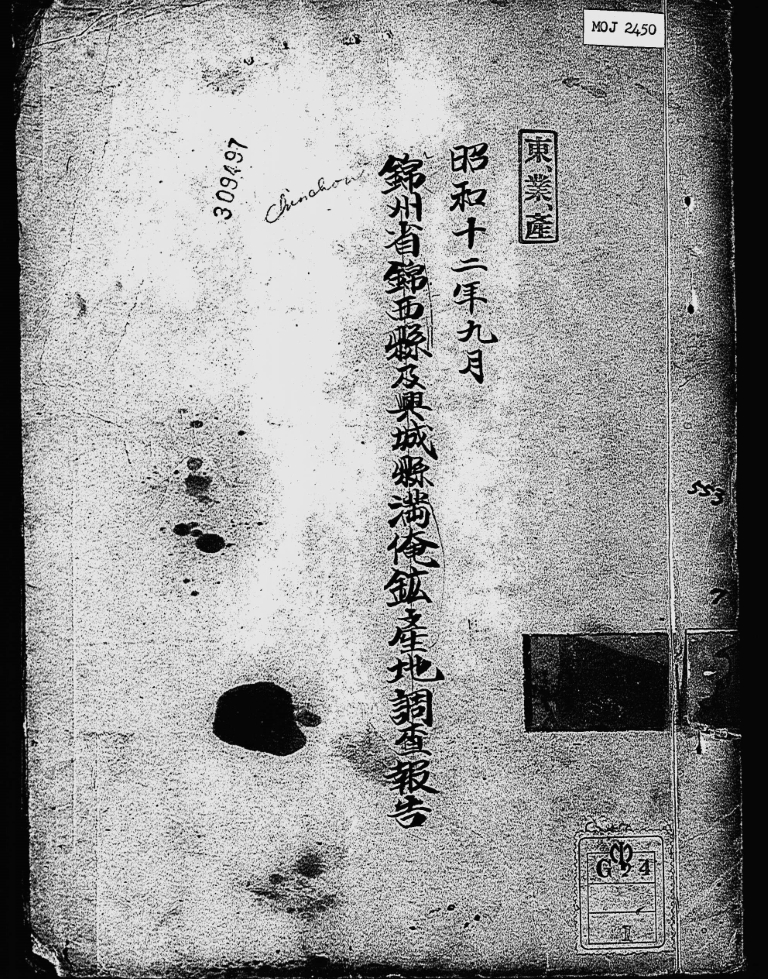 MOJ 2450
東、業、產
昭和十二年九月
錦州省錦西縣及興城縣満俺鉱產地調査報告
309497
Chinchou
553
7
G 24
1